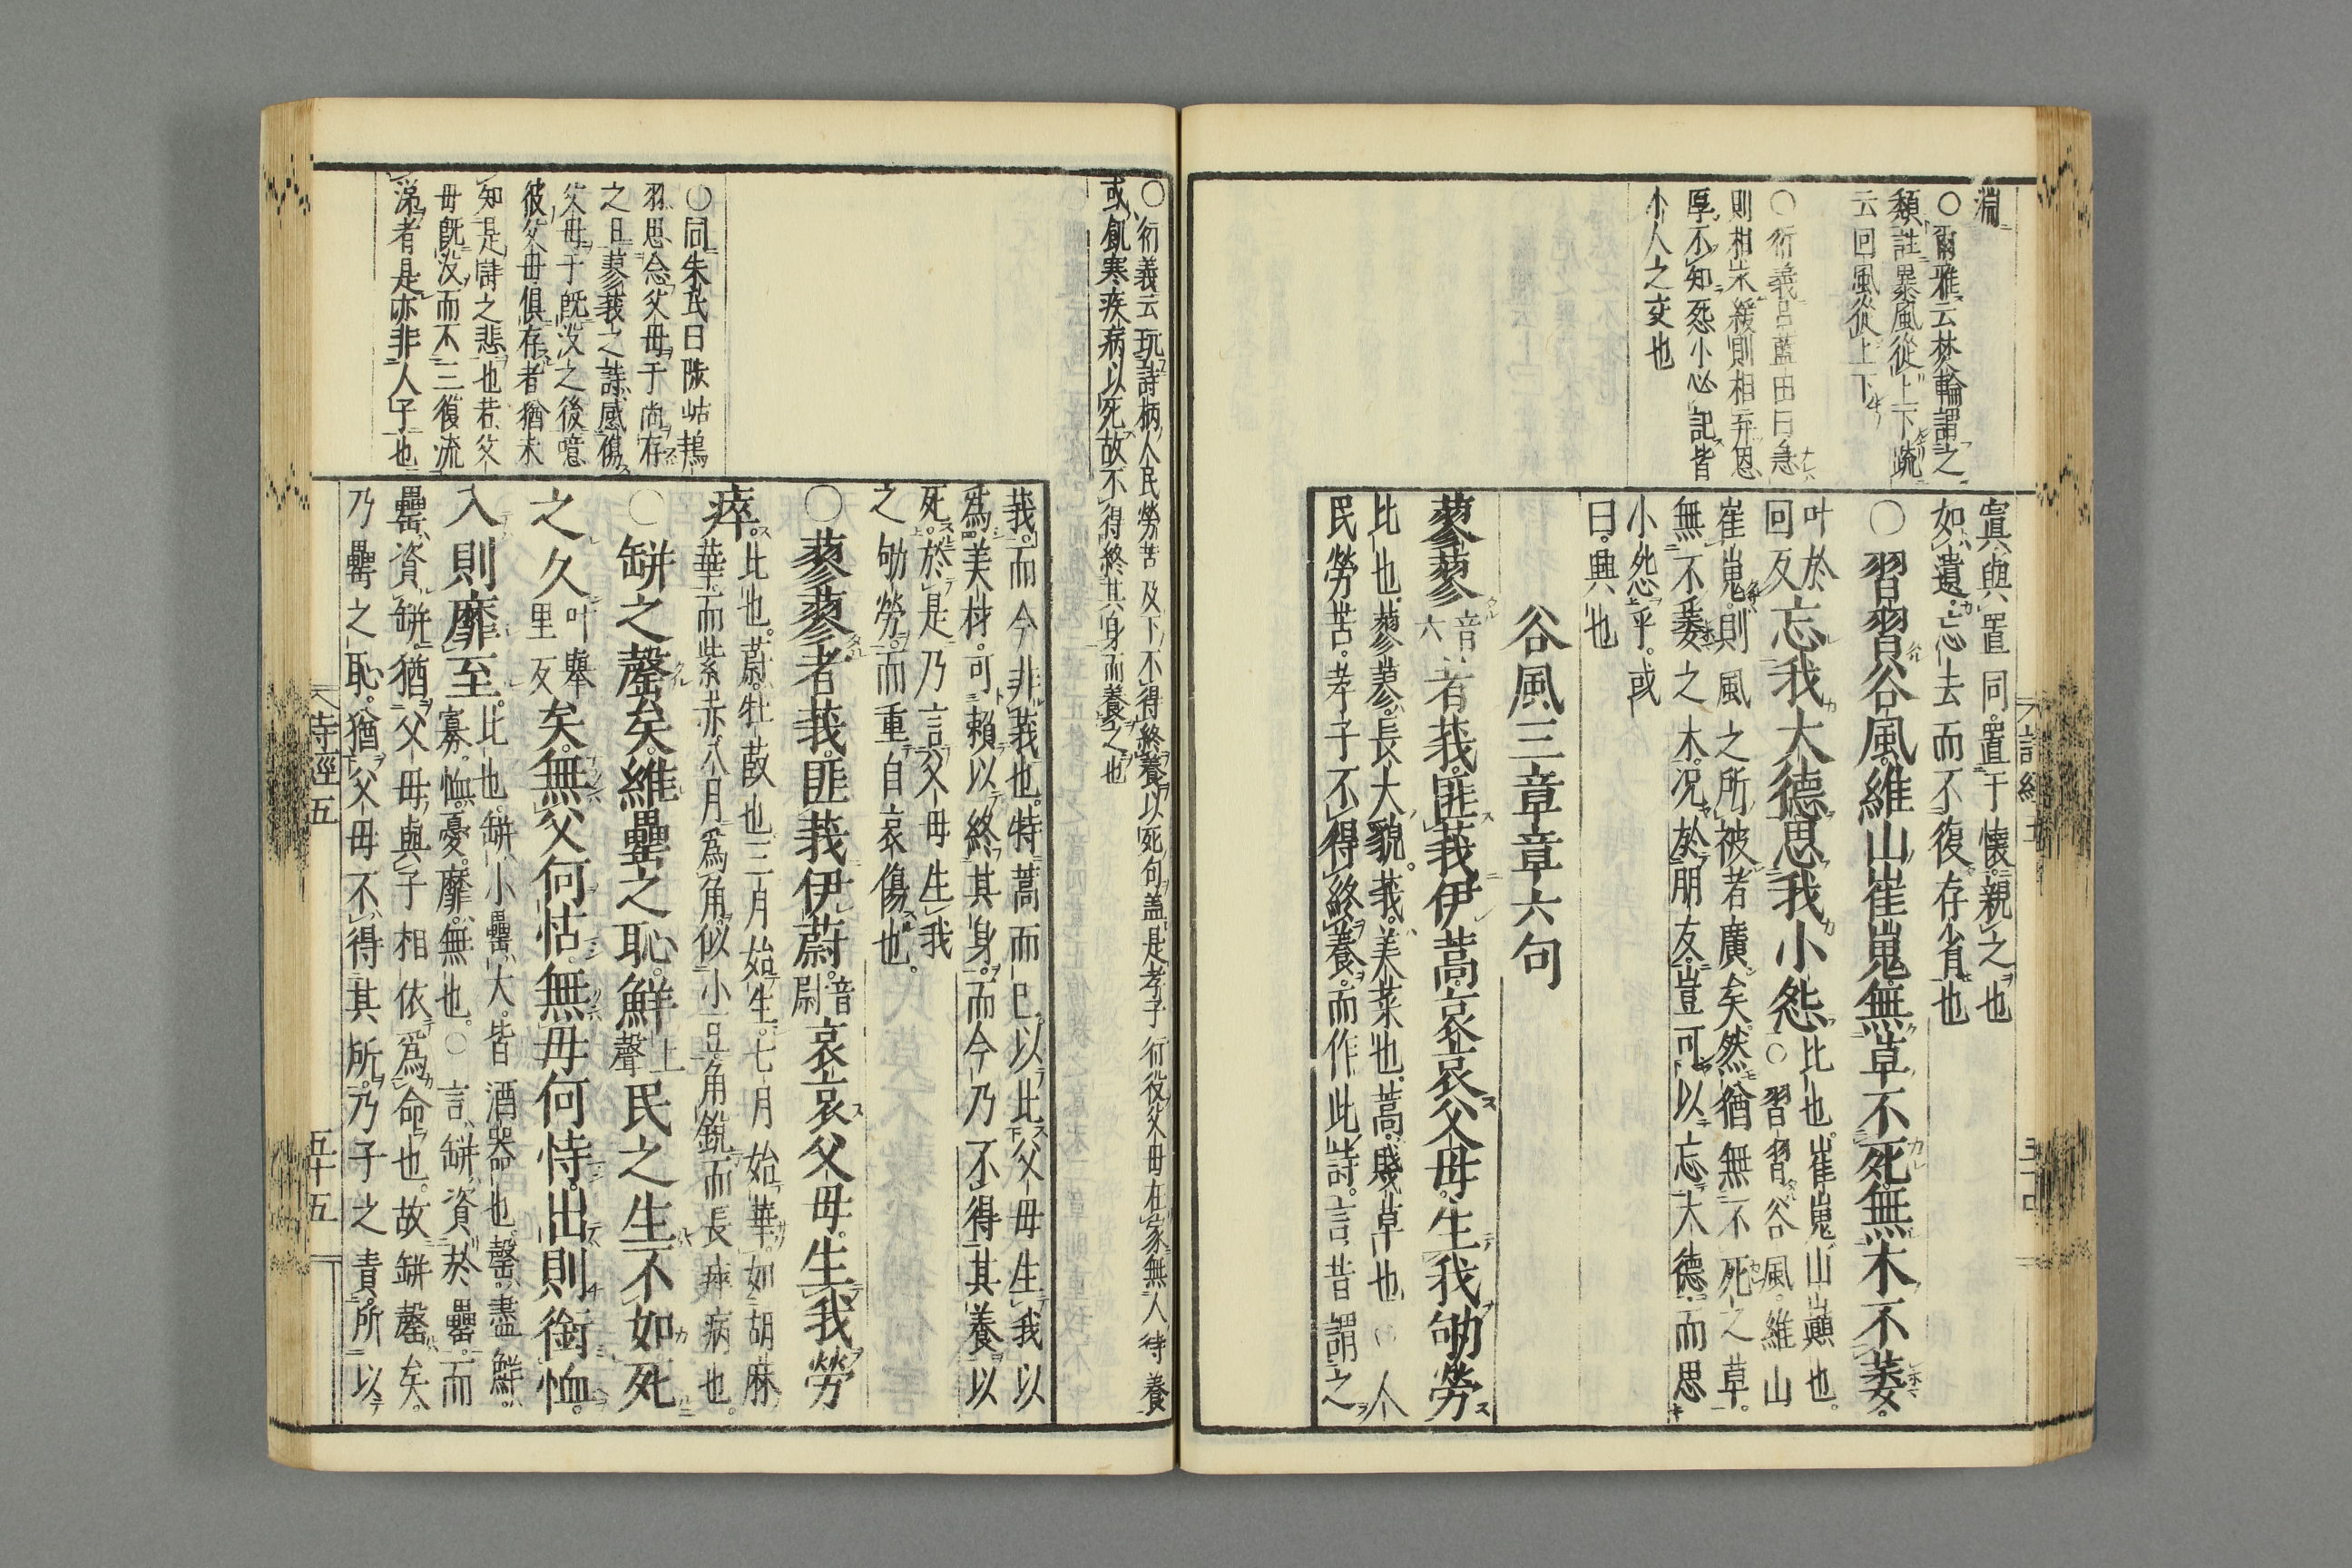 淵
○爾雅云焚輪謂之
頽註暴風從上下䟽
云回風從上下
○衍義呂藍田曰急
則相求緩則相弃恩
厚不知怨小必記皆
小人之交也
寘與置同置于懷親之也
如遺忘去而不復存省也
○習習谷風維山崔嵬無草不死無木不萎
叶於
回反
忘我大德思我小怨
比也崔嵬山巓也
○習習谷風維山
崔嵬則風之所被者廣矣然猶無不死之草
無不萎之木況於朋友豈可以忘大德而思
小怨乎或
曰興也
谷風三章章六句
蓼蓼
音
六
者莪匪莪伊蒿哀哀父母生我劬勞
比也蓼蓼長大貌莪美菜也蒿賤草也○人
民勞苦孝子不得終養而作此詩言昔謂之
詩經五
○衍義云玩詩柄人民勞苦及下不得終養以死句盖是孝子行役父母在家無人待養
或飢寒疾病以死故不得終其身而養之也
○同朱氏曰陟岵鴇
羽思念父母于尚存
之日蓼莪之詩感傷
父母于既沒之後噫
彼父母俱存者猶未
知是詩之悲也若父
母既沒而不三復流
涕者是亦非人子也
莪而今非莪也特蒿而已以此父母生我以
爲美材可賴以終其身而今乃不得其養以
死於是乃言父母生我
之劬勞而重自哀傷也
○蓼蓼者莪匪莪伊蔚
音
尉
哀哀父母生我勞
瘁
比也蔚牡菣也三月始生七月始華如胡麻
華而紫赤八月爲角似小豆角銳而長瘁病也
○缾之罄矣維罍之恥鮮
上
聲
民之生不如死
之久
叶舉
里反
矣無父何怙無母何恃出則銜恤
入則靡至
比也缾小罍大皆酒器也罄盡鮮
寡恤憂靡無也○言缾資於罍而
罍資缾猶父母與子相依爲命也故缾罄矣
乃罍之恥猶父母不得其所乃子之責所以
寺經五
五十五